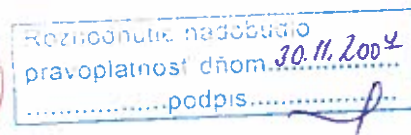 Rozhodnutie nadobudlo
pravoplatnosť dňom 30.11.2007
...............podpis...............